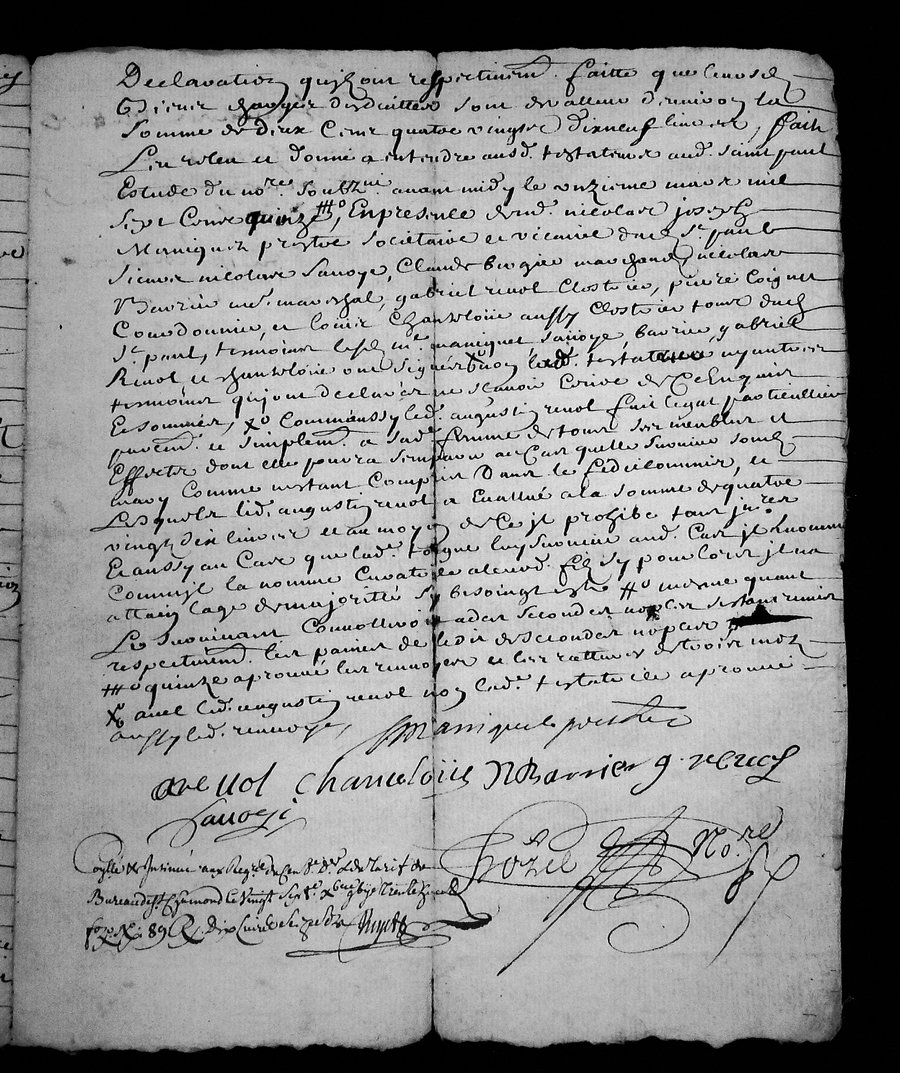 Declaration quils ont respectivem.t faitte que leursd.
Et siens charges desduittes sont de valleur d'environ la
somme de deux Cent quatre vingst dixneuf livres, fait
Leu releu et donné a entendre ausd. testateurs aud. saint paul
Estude du no.re soub.né avant midy le unzieme mars mil
sept Cent quinze #o, En presence de m.e nicolas joseph
Maniquet prestre societaire et vicaire dud. S.t paul
sieurs nicolas Savoye, Claude marchand, nicolas
Barrier m.e mareshal, gabriel renol Clostrier, pierre Coignet
Courdonnier, et louis Chanteloire aussy Clostrier tous dud.
S.t paul, temoins lesq. m.e maniquet savoye, barrier, gabriel
Renol et chanteloire ont signés non lad. testatrice n'y autres
tesmoins qui ont declarés ne scavoir Ecrire de Ce Enquis
Et sommés, Xo Comme aussy led. augustin renol fait legat particullier
purem.t et simplem.t a sad. femme de tous ses meubles et
Effects dont elle pourra au Cas quelle survive sond.
mary Comme n'estant Compris Dans le fideicommis, et
Lesquels led. augustin renol a Evallué a la somme de quatre
vingt dix livres et au moyen de Ce jl prohibe tous jn.res
Et aussy au Cas que lad. luy survive aud. Cas jl nomme
Commis la nomme Curatrice a leurd. fils sy pour lors jl na
attain lage de majorité sy besoingt est #o mesme quant
Le survivant Convolleroit a des secondes nopces
respectivem.t les paines de l'edit des secondes nopces
#o quinze aprouvé les renvoyes et les rattures de trois mots
Xo avec led. augustin renol non lad. testatrice aprouvé
aussy led. renvoye,
Maniquet prestre
are nol Chanteloire N Barrier g. renol
Savoye
Crozet No.re
Conyllé et Insinué aux Reg.res du
Bureau de S.t Chamond le vingt six
f.o 89 R. Dix Livres